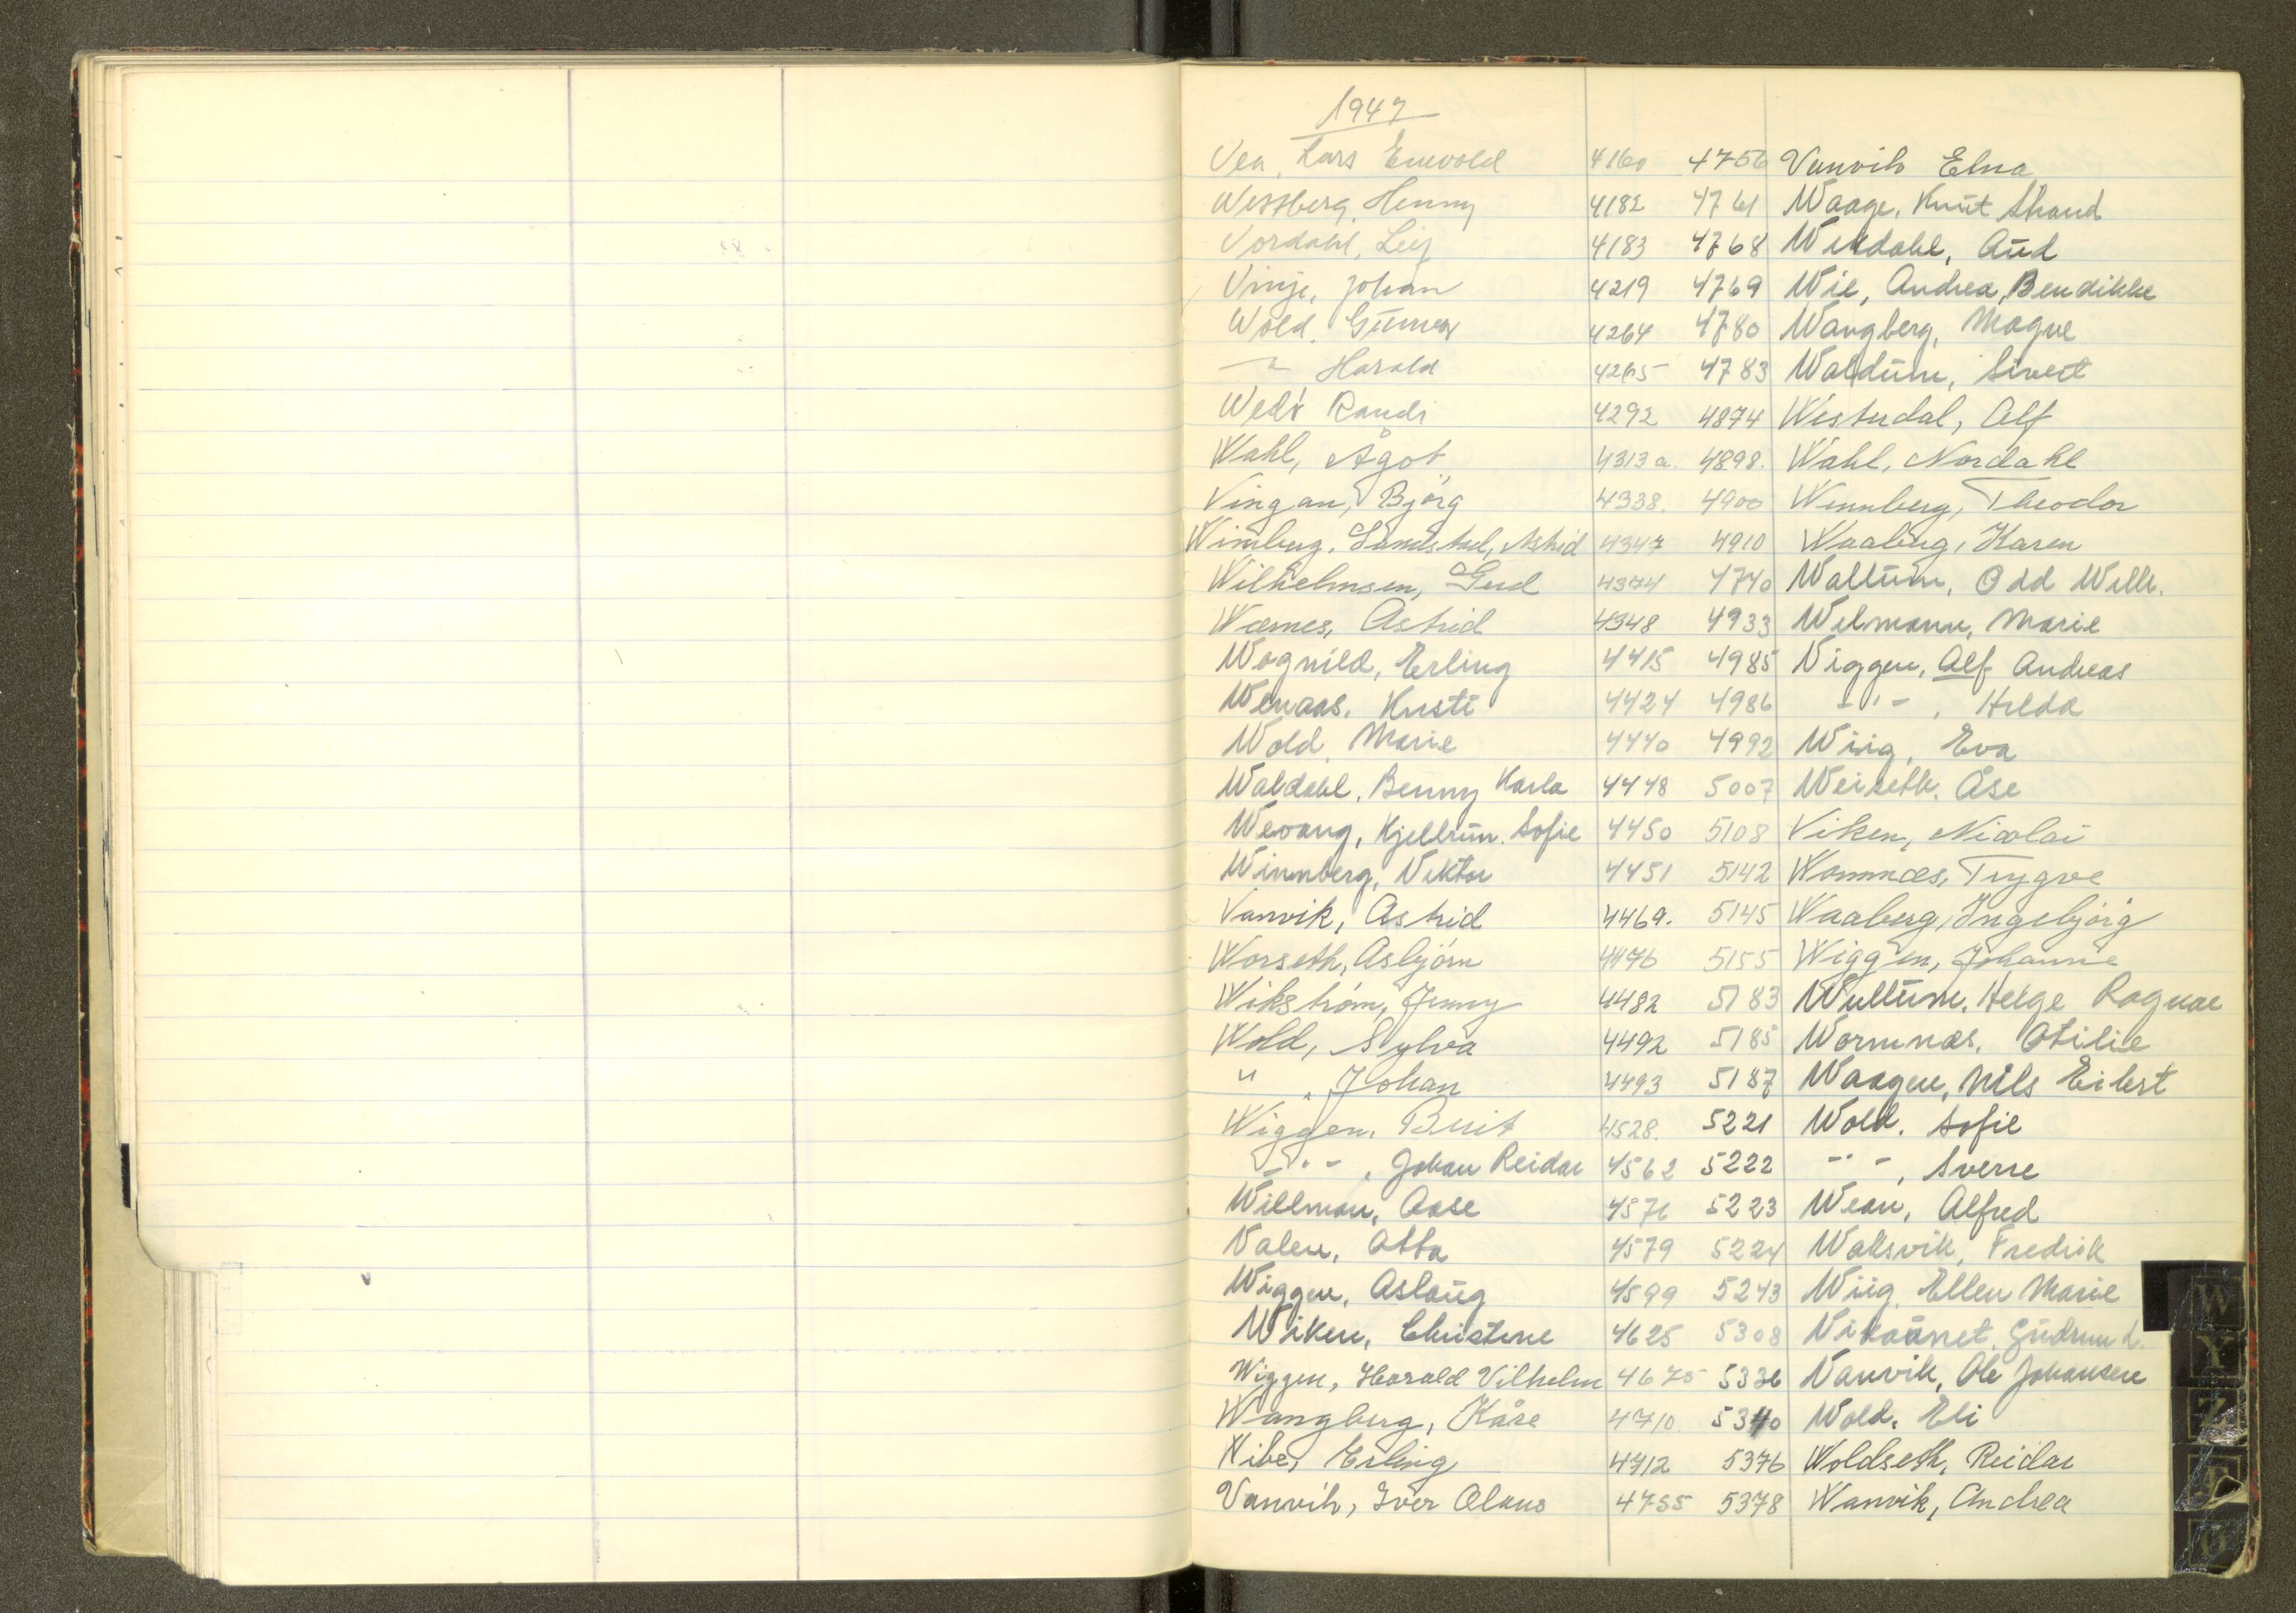 1947
Vea, Lars Enevold 4160 4756 Vanvik Elna
Wessberg, Henny 4182 4761 Waage, Knut Strand
Vordahl, Leif 4183 4768 Wikdahl, Aud
Vinje, Johan 4219 4769 Wie, Andrea, Bendikke
Wold, Gunnar 4264 4780 Wangberg, Magne
-"- Harald 4265 4783 Waldum, Sivert
Randi 4292 4874 Westerdal, Alf
Wahl, Ågot 4313a 4898. Wahl, Nordahl
Vingan, Bjørg 4338. 4900 Wennberg, Theodor
Astrid 4347 4910 Waaberg, Karen
Wilhelmsen, Gerd 4374 4740 Wallum, Odd Wilh.
Wærnes, Astrid 4348 4933 Welmann, Marie
Wognild, Erling 4415 4985 Viggen, Alf Andreas
Wenaas, Kirsti 4424 4986 -"-, Hilda
Wold, Marie 4440 4992 Wiig, Eva
Waldahl, Benny Karla 4448 5007 Weiseth, Åse
Wevang, Kjellrun Sofie 4450 5108 Viken, Nicolai
Winnberg, Viktor 4451 5142 Wormnæs, Trygve
Vanvik, Astrid 4469. 5145 Waaberg, Ingebjørg
Worseth, Asbjörn 4476 5155 Wiggen, Johanne
Wikström, Jenny 4482 5183 Wullum, Helge Ragnar
Wold, Sylvia 4492 5185 Wormnæs, Otilie
" , Johan 4493 5187 Waagen, Nils Eilert
Wiggen, Brit 4528. 5221 Wold, Sofie
-"-, Johan Reidar 4562 5222 -"-, Sverre
Willman, Aase 4576 5223 Wean, Alfred
Valen, Otto 4579 5224 Waksvik, Fredrik
Wiggen, Aslaug 4599 5243 Wiig, Ellen Marie
Wiken, Christine 4625 5308 Gudrun
Wiggen, Harald Vilhelm 4675 5336 Vanvik, Ole Johansen
Wangberg, Kåre 4710 5340 Wold, Eli
Wibe, Erling 4712 5376 Woldseth, Reidar
Vanvik, Iver Olaus 4755 5378 Wanvik, Andrea
W
Y
Z